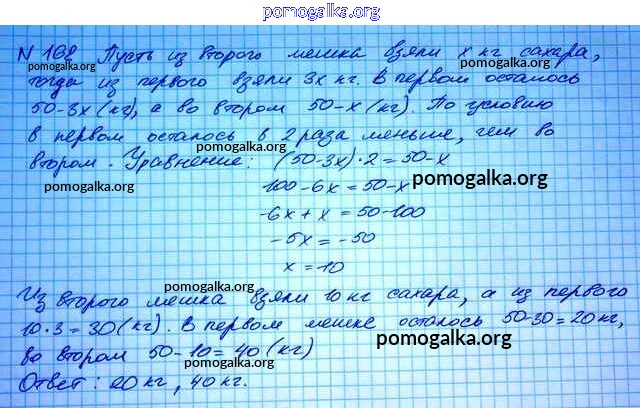 pomogalka.org
N 168 Пусть из второго мешка взяли x кг сахара,
pomogalka.org pomogalka.org
тогда из первого взяли 3x кг. В первом осталось
50-3x (кг), а во втором 50-x (кг). По условию
в первом осталось в 2 раза меньше, чем во
pomogalka.org
втором. Уравнение: (50-3x)·2=50-x
pomogalka.org
100-6x=50-x pomogalka.org
-6x+x=50-100
-5x=-50
x=10
pomogalka.org
Из второго мешка взяли 10 кг сахара, а из первого
10·3=30(кг). В первом мешке осталось 50-30=20кг,
pomogalka.org
во втором 50-10=40(кг)
Ответ: 20кг, 40кг.